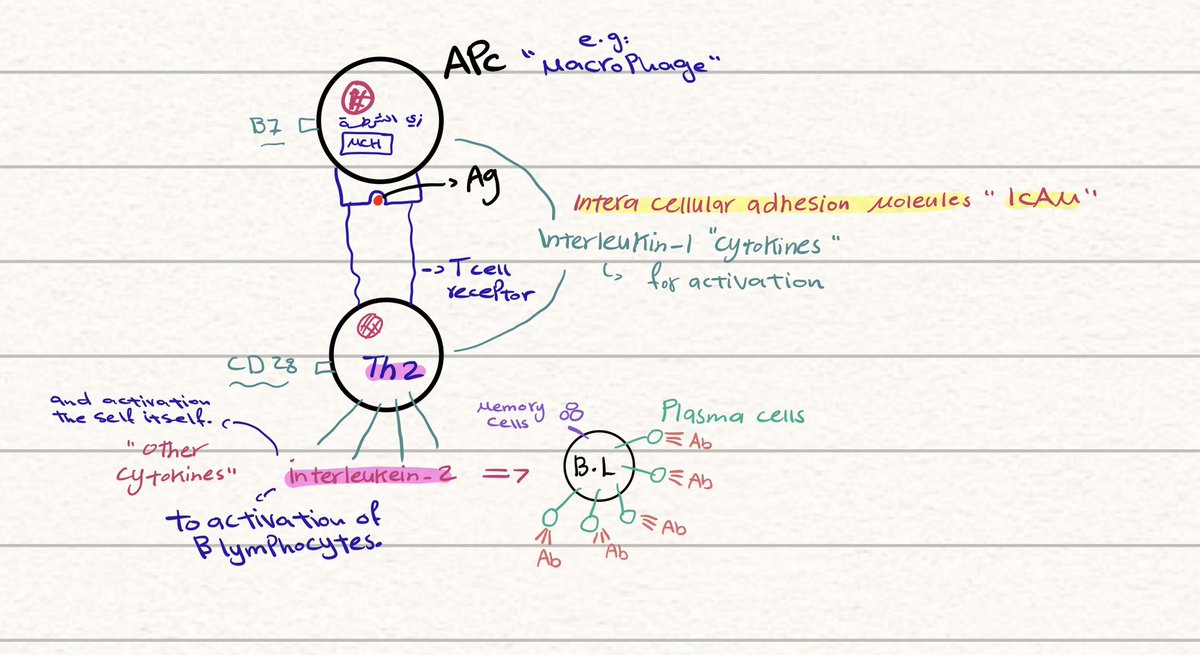 e.g:
APc "Macrophage"
B7
زي الشرطة
MCH
Ag
Intera cellular adhesion Moleules "IcAM"
Interleukin-1 "cytokines"
for activation
T cell
receptor
CD 28
Th2
and activation
the self itself.
"other
cytokines"
interleukein-2
To activation of
B lymphocytes.
Memory
cells
B.L
Plasma cells
Ab
Ab
Ab
Ab
Ab